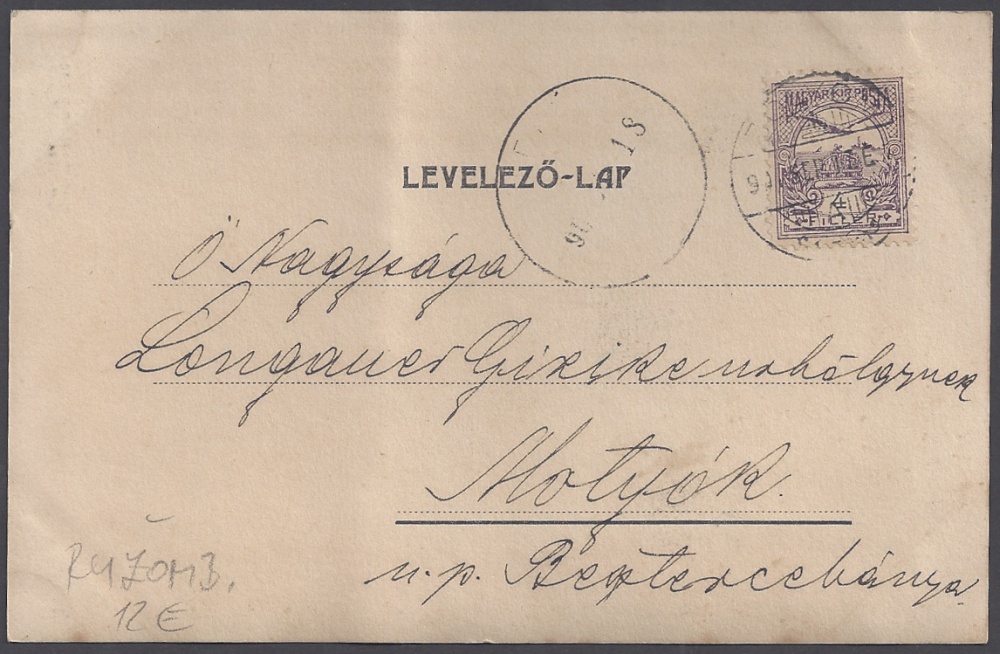 LEVELEZŐ-LAP
18
MAGYAR KIR. POSTA
4
FILLÉR
Ő Nagysága
Longauer Gizike urhölgynek
Motyók.
u. p. Besztercebánya
RUŽOMB.
12 €